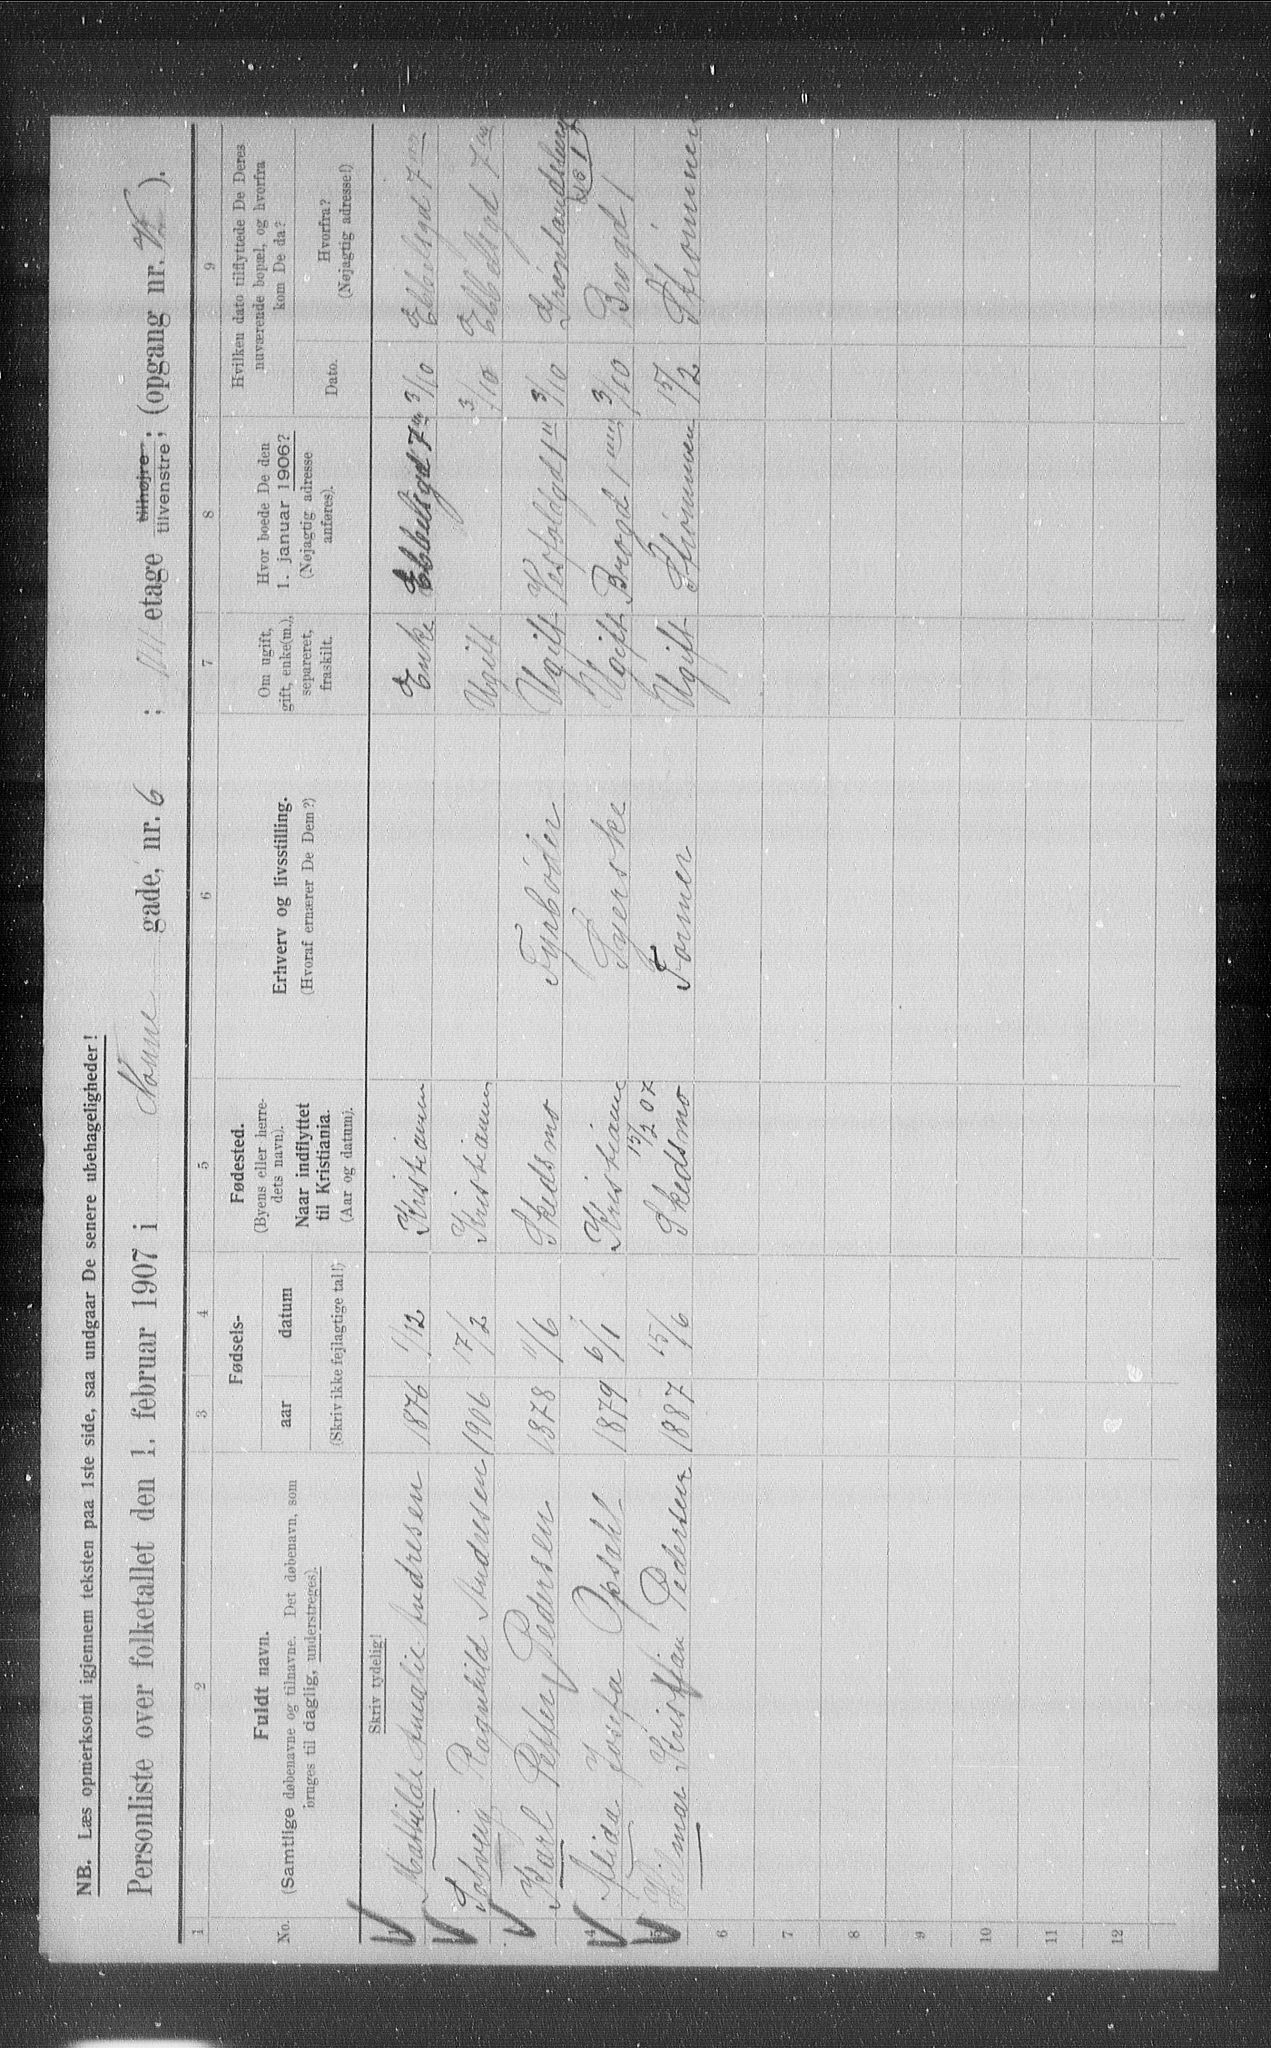 NB. Læs opmerksomt igjennem teksten paa 1ste side, saa undgaar De senere ubehageligheder!
Personliste over folketallet den 1. februar 1907 i Nonne gade, nr. 6 ; etage tilhøjre tilvenstre; (opgang nr. ).
1 2 3 4 5 6 7 8 9
No.
Fuldt navn.
(Samtlige døbenavne og tilnavne. Det døbenavn, som
bruges til daglig, understreges).
Fødsels-
aar datum
(Skriv ikke fejlagtige tal!)
Fødested.
(Byens eller herre-
dets navn).
Naar indflyttet
til Kristiania.
(Aar og datum).
Erhverv og livsstilling.
(Hvoraf ernærer De Dem?)
Om ugift,
gift, enke(m.),
separeret,
fraskilt.
Hvor boede De den
1. januar 1906?
(Nøjagtig adresse
anføres).
Hvilken dato tilflyttede De Deres
nuværende bopæl, og hvorfra
kom De da?
Dato.
Hvorfra?
(Nøjagtig adresse!)
Skriv tydelig!
Mathilde Amalie Andresen 1876 1/12 Kristiania Enke Ebbelsgd 7 3/10 Ebbelsgd 7
Solveig Ragnhild Andresen 1906 17/2 Kristiania Ugift 3/10 Ebbelsgd 7
Karl Petter Pedersen 1878 11/6 Skedsmo Fyrbøder Ugift Vestfoldgd 1 3/10 Grønlandsleret No 15
4 Alida Josefa Opsahl 1879 6/1 Kristiania Syerske Ugift Brogd 1 3/10 Brogd 1
15/2 07
5 Hilmar Kristian Pedersen 1887 15/6 Skedsmo Former Ugift Strømmen 15/2 Strømmen
6
7
8
9
10
11
12